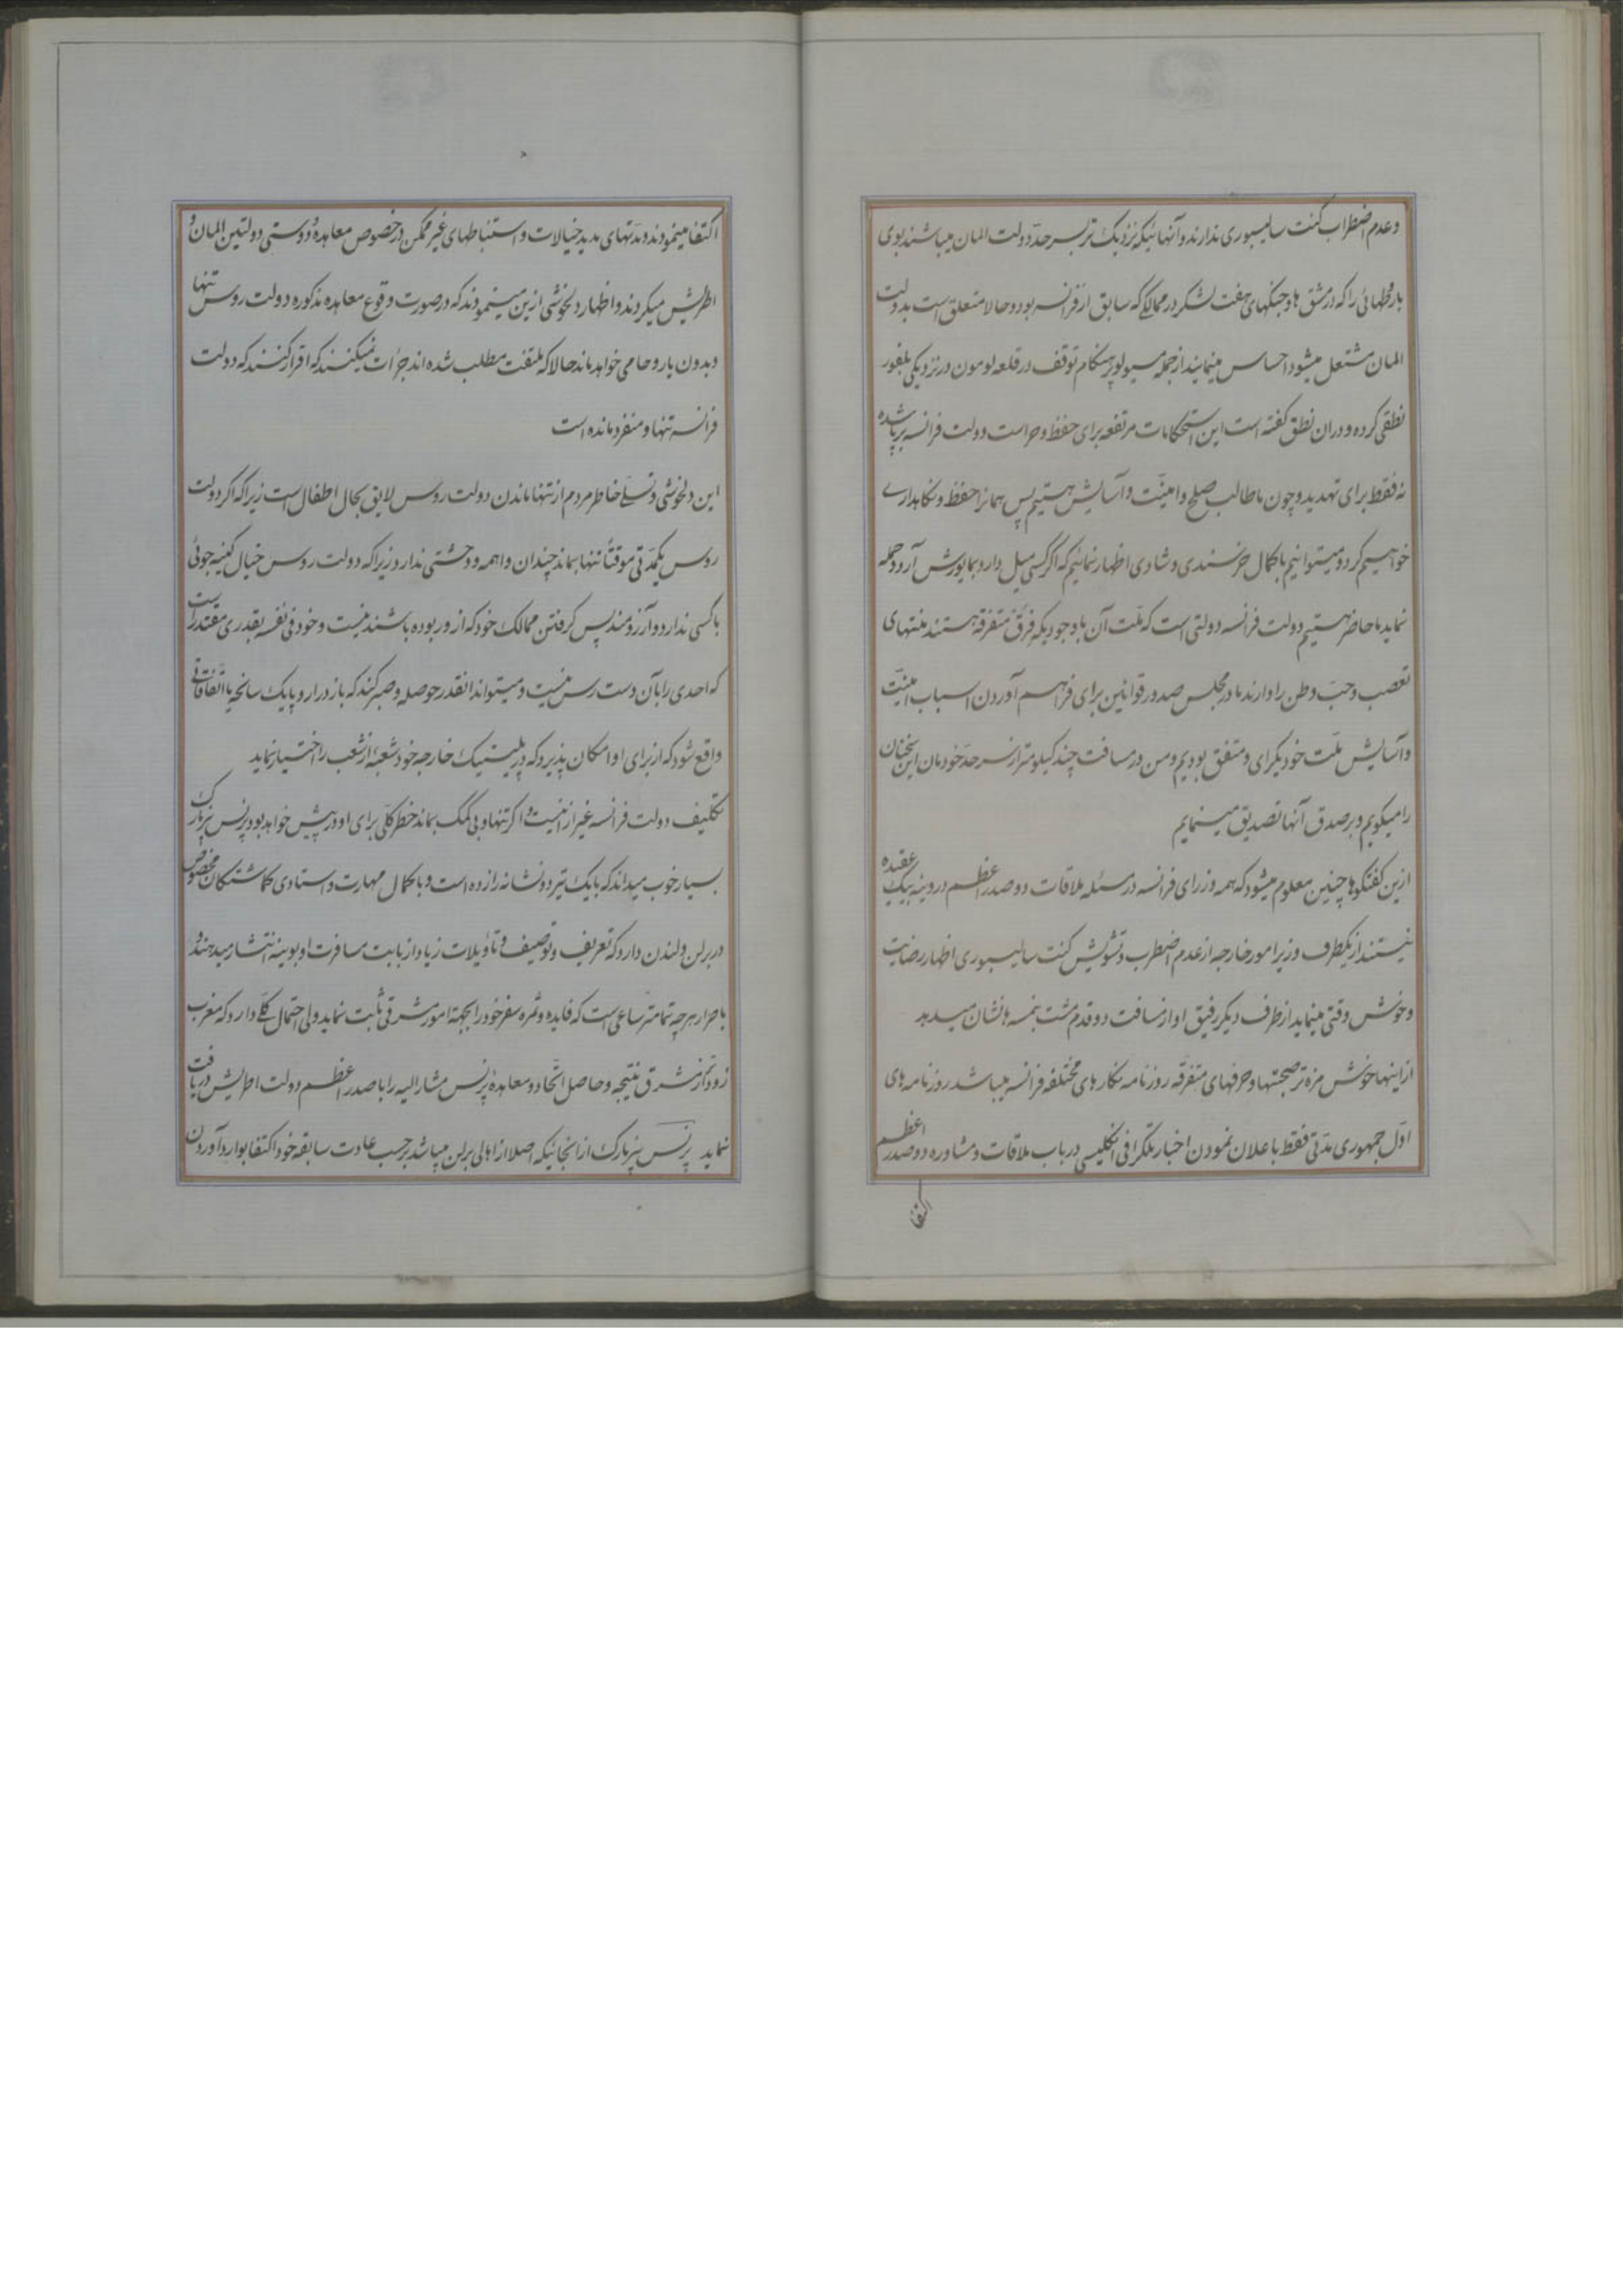 وعدم اضطراب کنت سالیسبوری ندارند و آنهائیکه نزدیک تر بسرحدّ دولت المان میباشند بوی
باروطهائی را که در مشق ها و جنکهای هفت لشکر در ممالکی که سابق از فرانسه بود و حالا متعلق است بدولت
المان مشتعل میشود احساس مینمایند از جمله مسیو لوپر هنکام توقف در قلعه لومون در نزدیکی بلفور
نطقی کرده و در ان نطق کفته است این استحکامات مرتفعه برای حفظ و حراست دولت فرانسه برپا شده
نه فقط برای تهدید و چون ما طالب صلح و امنیّت و آسایش هستیم پس همانرا حفظ و نکاهداری
خواهیم کرد و میتوانیم با کمال خرسندی و شادی اظهار نمائیم که اکر کسی میل دارد بما یورش آرد و حمله
نماید ما حاضر هستیم دولت فرانسه دولتی است که ملّت آن باوجودیکه فرق متفرقه هستند منتهای
تعصب و حبّ وطن را دارند ما در مجلس صدور قوانین برای فراهم آوردن اسباب امنیّت
و آسایش ملّت خود یکرای و متفق بودیم و من در مسافت چند کیلومتر از سرحدّ خودمان این سخنان
را میکویم و بر صدق آنها تصدیق مینمایم
ازین کفتکوها چنین معلوم میشود که همه وزرای فرانسه در مسئله ملاقات دو صدر اعظم در وینه بیک عقیده
نیستند از یکطرف وزیر امور خارجه از عدم اضطرب و تشویش کنت سالیسبوری اظهار رضایت
و خوش وقتی مینماید از طرف دیکر رفیق او از مسافت دو قدم مشت بنمسه ها نشان میدهد
از اینها خوش مزه تر صحبتها و حرفهای متفرّقه روزنامه نکارهای مختلفه فرانسه میباشد روزنامه های
اوّل جمهوری مدّتی فقط باعلان نمودن اخبار تلکرافی انکلیسی در باب ملاقات و مشاوره دو صدر اعظم
اکتفا
اکتفا مینمودند و مدّتهای مدید خیالات و استنباطهای غیر ممکن در خصوص معاهدهٔ دوستی دولتین المان و
اطریش میکردند و اظهار دلخوشی ازین مینمودند که در صورت وقوع معاهده مذکوره دولت روس تنها
و بدون یار و حامی خواهد ماند حالا که ملتفت مطلب شده اند جرات نمیکنند که اقرار کنند که دولت
فرانسه تنها و منفرد مانده است
این دلخوشی و تسلّی خاطر مردم از تنها ماندن دولت روس لایق بحال اطفال است زیرا که اکر دولت
روس یکمدّتی موقتاً تنها بماند چندان واهمه و وحشتی ندارد زیرا که دولت روس خیال کینه جوئی
با کسی ندارد و آرزومند پس کرفتن ممالک خود که از و ربوده باشند نیست و خود فی نفسه بقدری مقتدر است
که احدی را بآن دست رس نیست و میتواند انقدر حوصله و صبر کند که باز در اروپا یک سانحه یا اتّفاقاتی
واقع شود که از برای او امکان پذیرد که در پلیتیک خارجه خود شعبهٔ از شعب را اختیار نماید
تکلیف دولت فرانسه غیر از اینست و اکر تنها و بی کمک بماند خطر کلّی برای او در پیش خواهد بود پرنس بیزمارک
بسیار خوب میداند که با یک تیر دو نشانه را زده است و با کمال مهارت و استادی کماشتکان مخصوص
در برلن و لندن دارد که تعریف و توصیف و تأویلات زیاد از بابت مسافرت او بوینه انتشار میدهند و
باصرار هر چه تمامتر ساعی است که فایده و ثمره سفر خود را بجهته امور مشرقی ثابت نماید ولی احتمال کلّی دارد که مغرب
زودتر از مشرق نتیجه و حاصل اتّحاد و معاهدهٔ پرنس مشار الیه را با صدر اعظم دولت اطریش دریافت
نماید پرنس بیزمارک از انجائیکه اصلا از اهالی برلن میباشد بر حسب عادت سابقه خود اکتفا بوارد آوردن